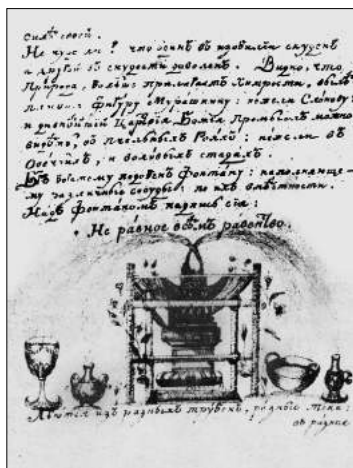 силѣ своей.
Не чудо ли? что один въ изобиліи скуден
а другій въ скудости доволен. Видно, что
Природа, болѣе прилагаетъ Хитрости, вылѣ-
пливая фигуру Мурашкину: нежели Слонову:
и дивнѣйшій Царствія Божія Промыслъ можно
видѣть, въ Пчельныхъ Рояхъ: нежели въ
Овечіихъ, и воловыхъ стадах.
Бгъ богатому подобен Фонтану: наполняюще-
му различные сосуды по их вмѣстности.
Надъ Фонтаномъ надпись сія:
Не равное всѣмъ равенство.
Льются изъ разныхъ трубокъ, разные токи:
въ разные